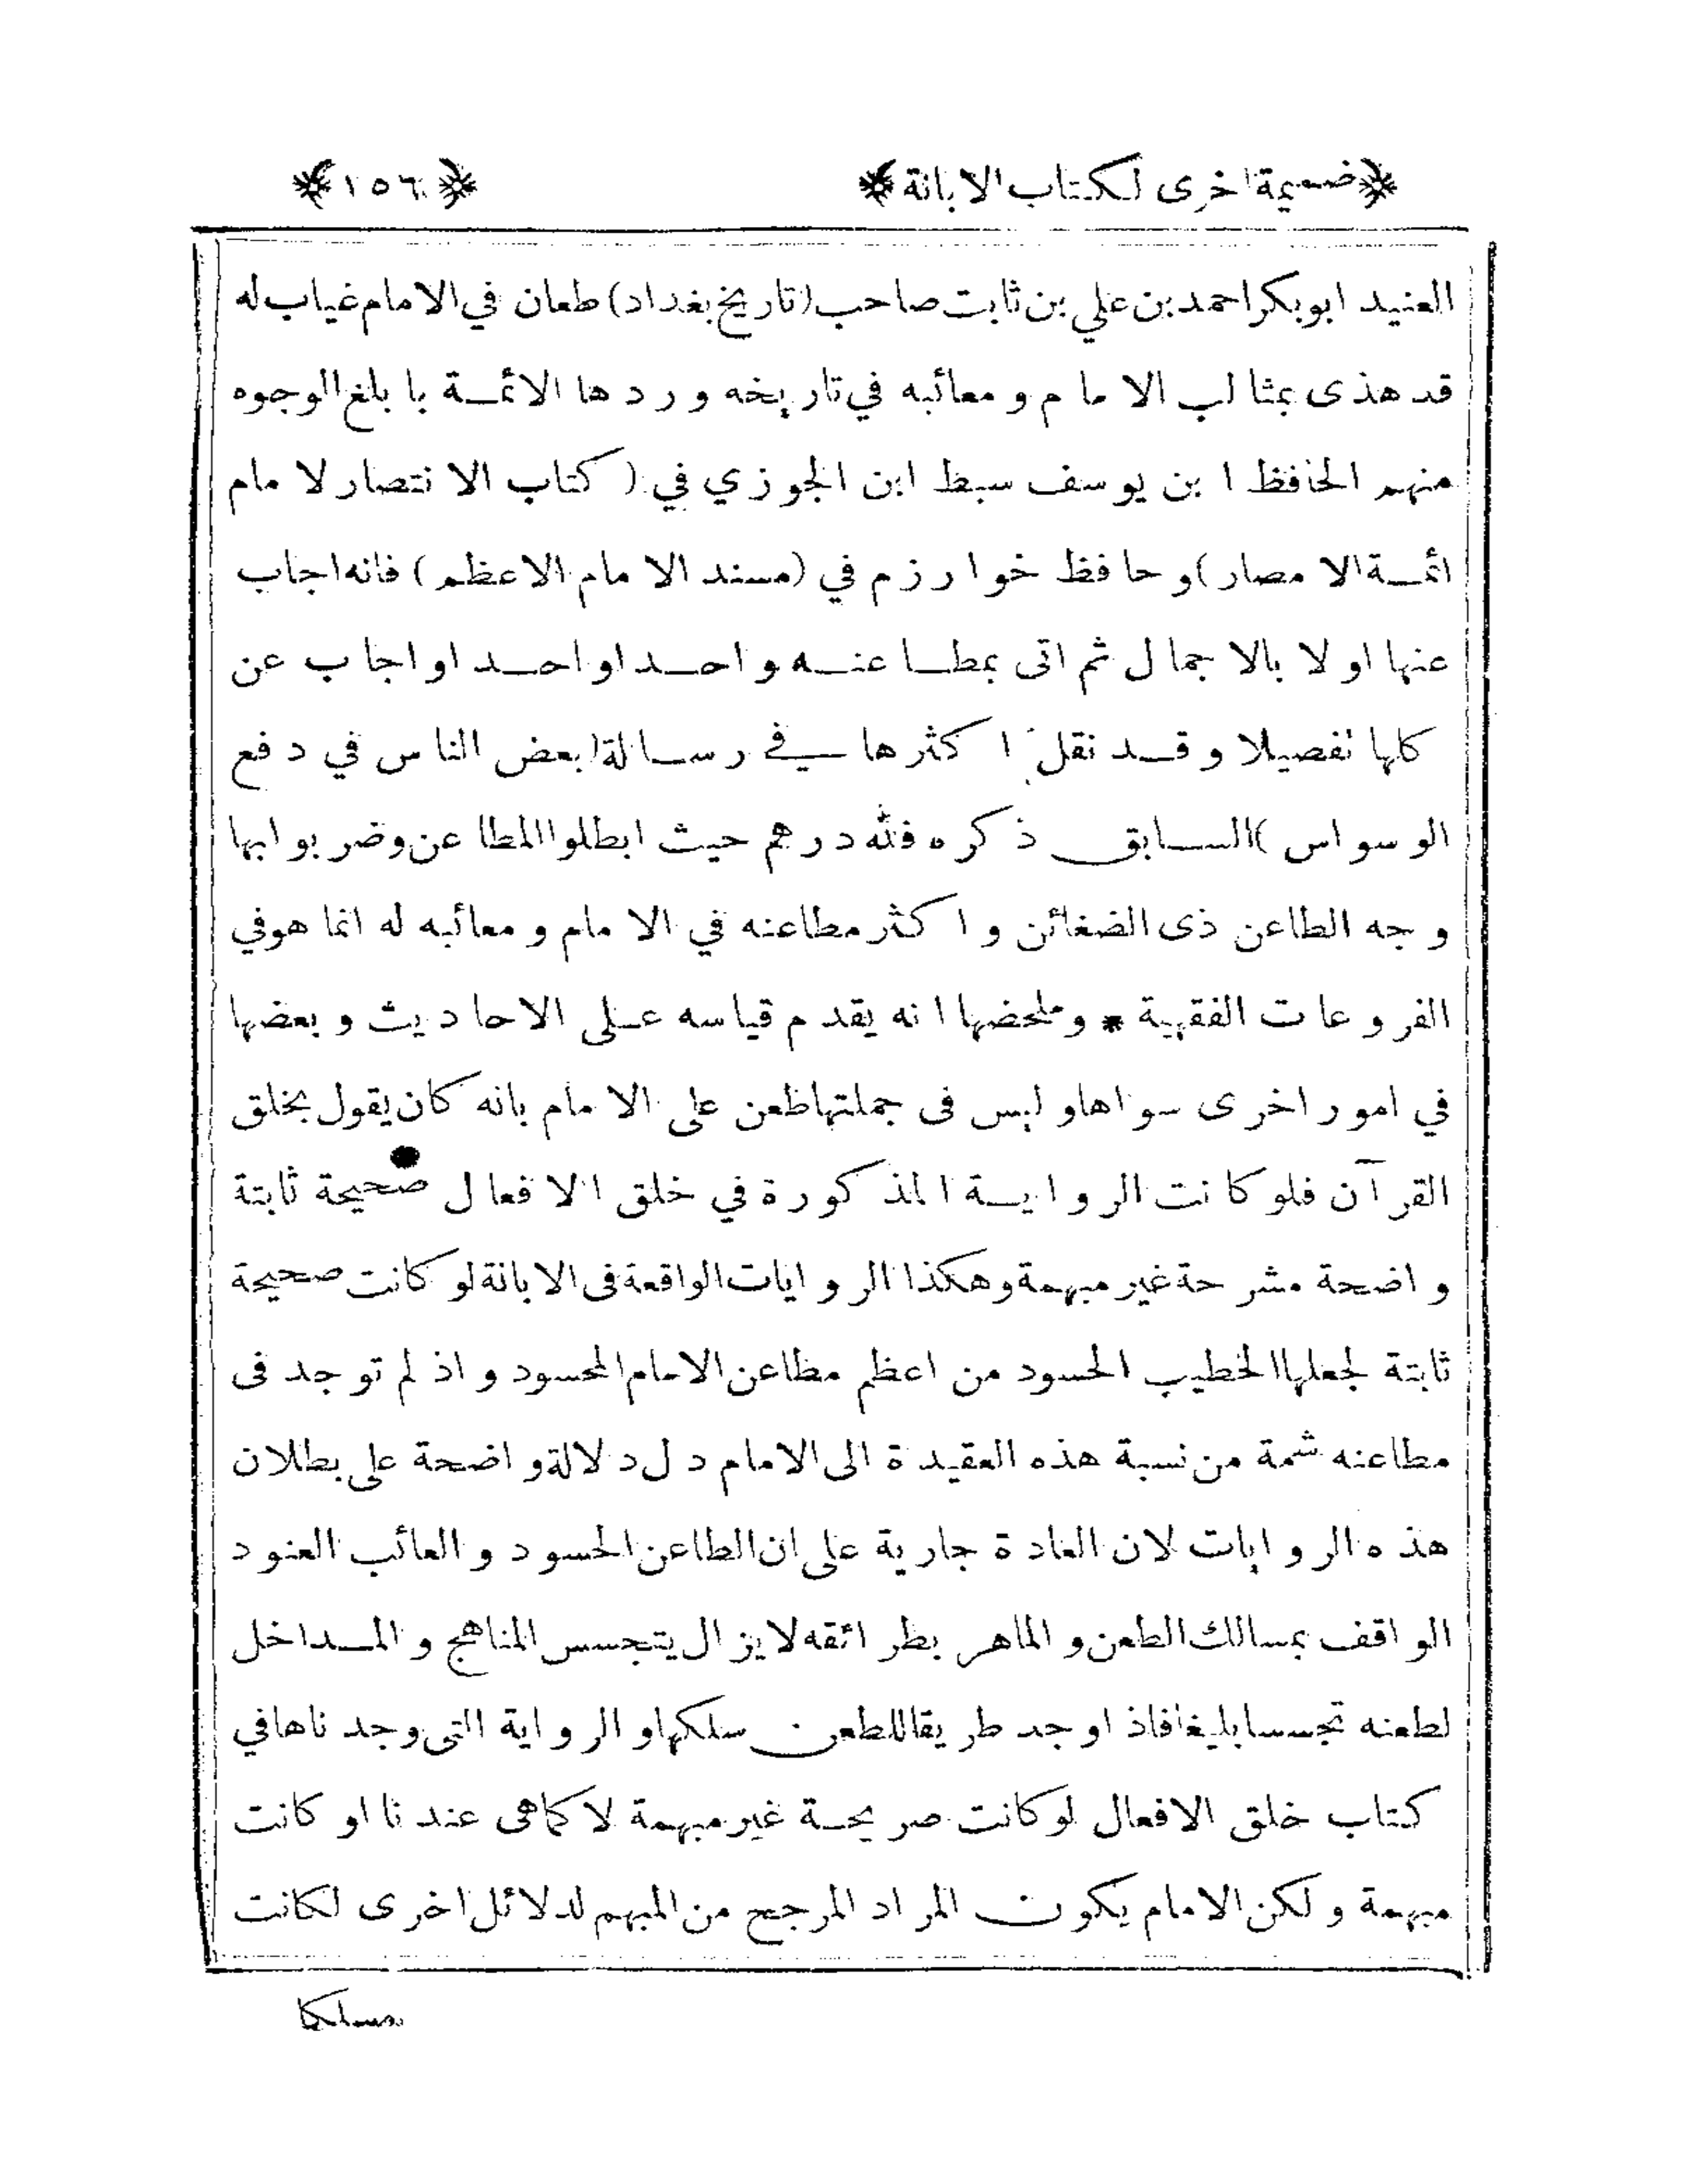 ضميمة اخرى لكتاب الابانة ١٥٦
العنيد ابوبكر احمد بن علي بن ثابت صاحب (تاريخ بغداد) طعان في الامام غياب له
قد هذى بمثالب الامام ومعائبه في تاريخه وردها الائمة بابلغ الوجوه
منهم الحافظ ابن يوسف سبط ابن الجوزي في (كتاب الانتصار لامام
ائمة الامصار) وحافظ خوارزم في (مسند الامام الاعظم) فانه اجاب
عنها اولا بالاجمال ثم اتى بمطاعنه واحدا واحدا واجاب عن
كلها تفصيلا وقد نقل اكثرها في رسالة (بعض الناس في دفع
الوسواس) السابق ذكره فلله درهم حيث ابطلوا المطاعن وضربوا بها
وجه الطاعن ذى الضغائن واكثر مطاعنه في الامام ومعائبه له انما هو في
الفروعات الفقهية * وملخصها انه يقدم قياسه على الاحاديث وبعضها
في امور اخرى سواها وليس فى جملتها طعن على الامام بانه كان يقول بخلق
القرآن فلو كانت الرواية المذكورة في خلق الافعال صحيحة ثابتة
واضحة مشرحة غير مبهمة وهكذا الروايات الواقعة فى الابانة لو كانت صحيحة
ثابتة لجعلها الخطيب الحسود من اعظم مطاعن الامام المحسود واذ لم توجد فى
مطاعنه شمة من نسبة هذه العقيدة الى الامام دل دلالة واضحة على بطلان
هذه الروايات لان العادة جارية على ان الطاعن الحسود والعائب العنود
الواقف بمسالك الطعن والماهر بطرائقه لايزال يتجسس المناهج والمداخل
لطعنه تجسسا بليغا فاذا وجد طريقا للطعن سلكها والرواية التى وجدناها في
كتاب خلق الافعال لو كانت صريحة غير مبهمة لا كما هى عندنا او كانت
مبهمة ولكن الامام يكون المراد المرجح من المبهم لدلائل اخرى لكانت
مسلكا